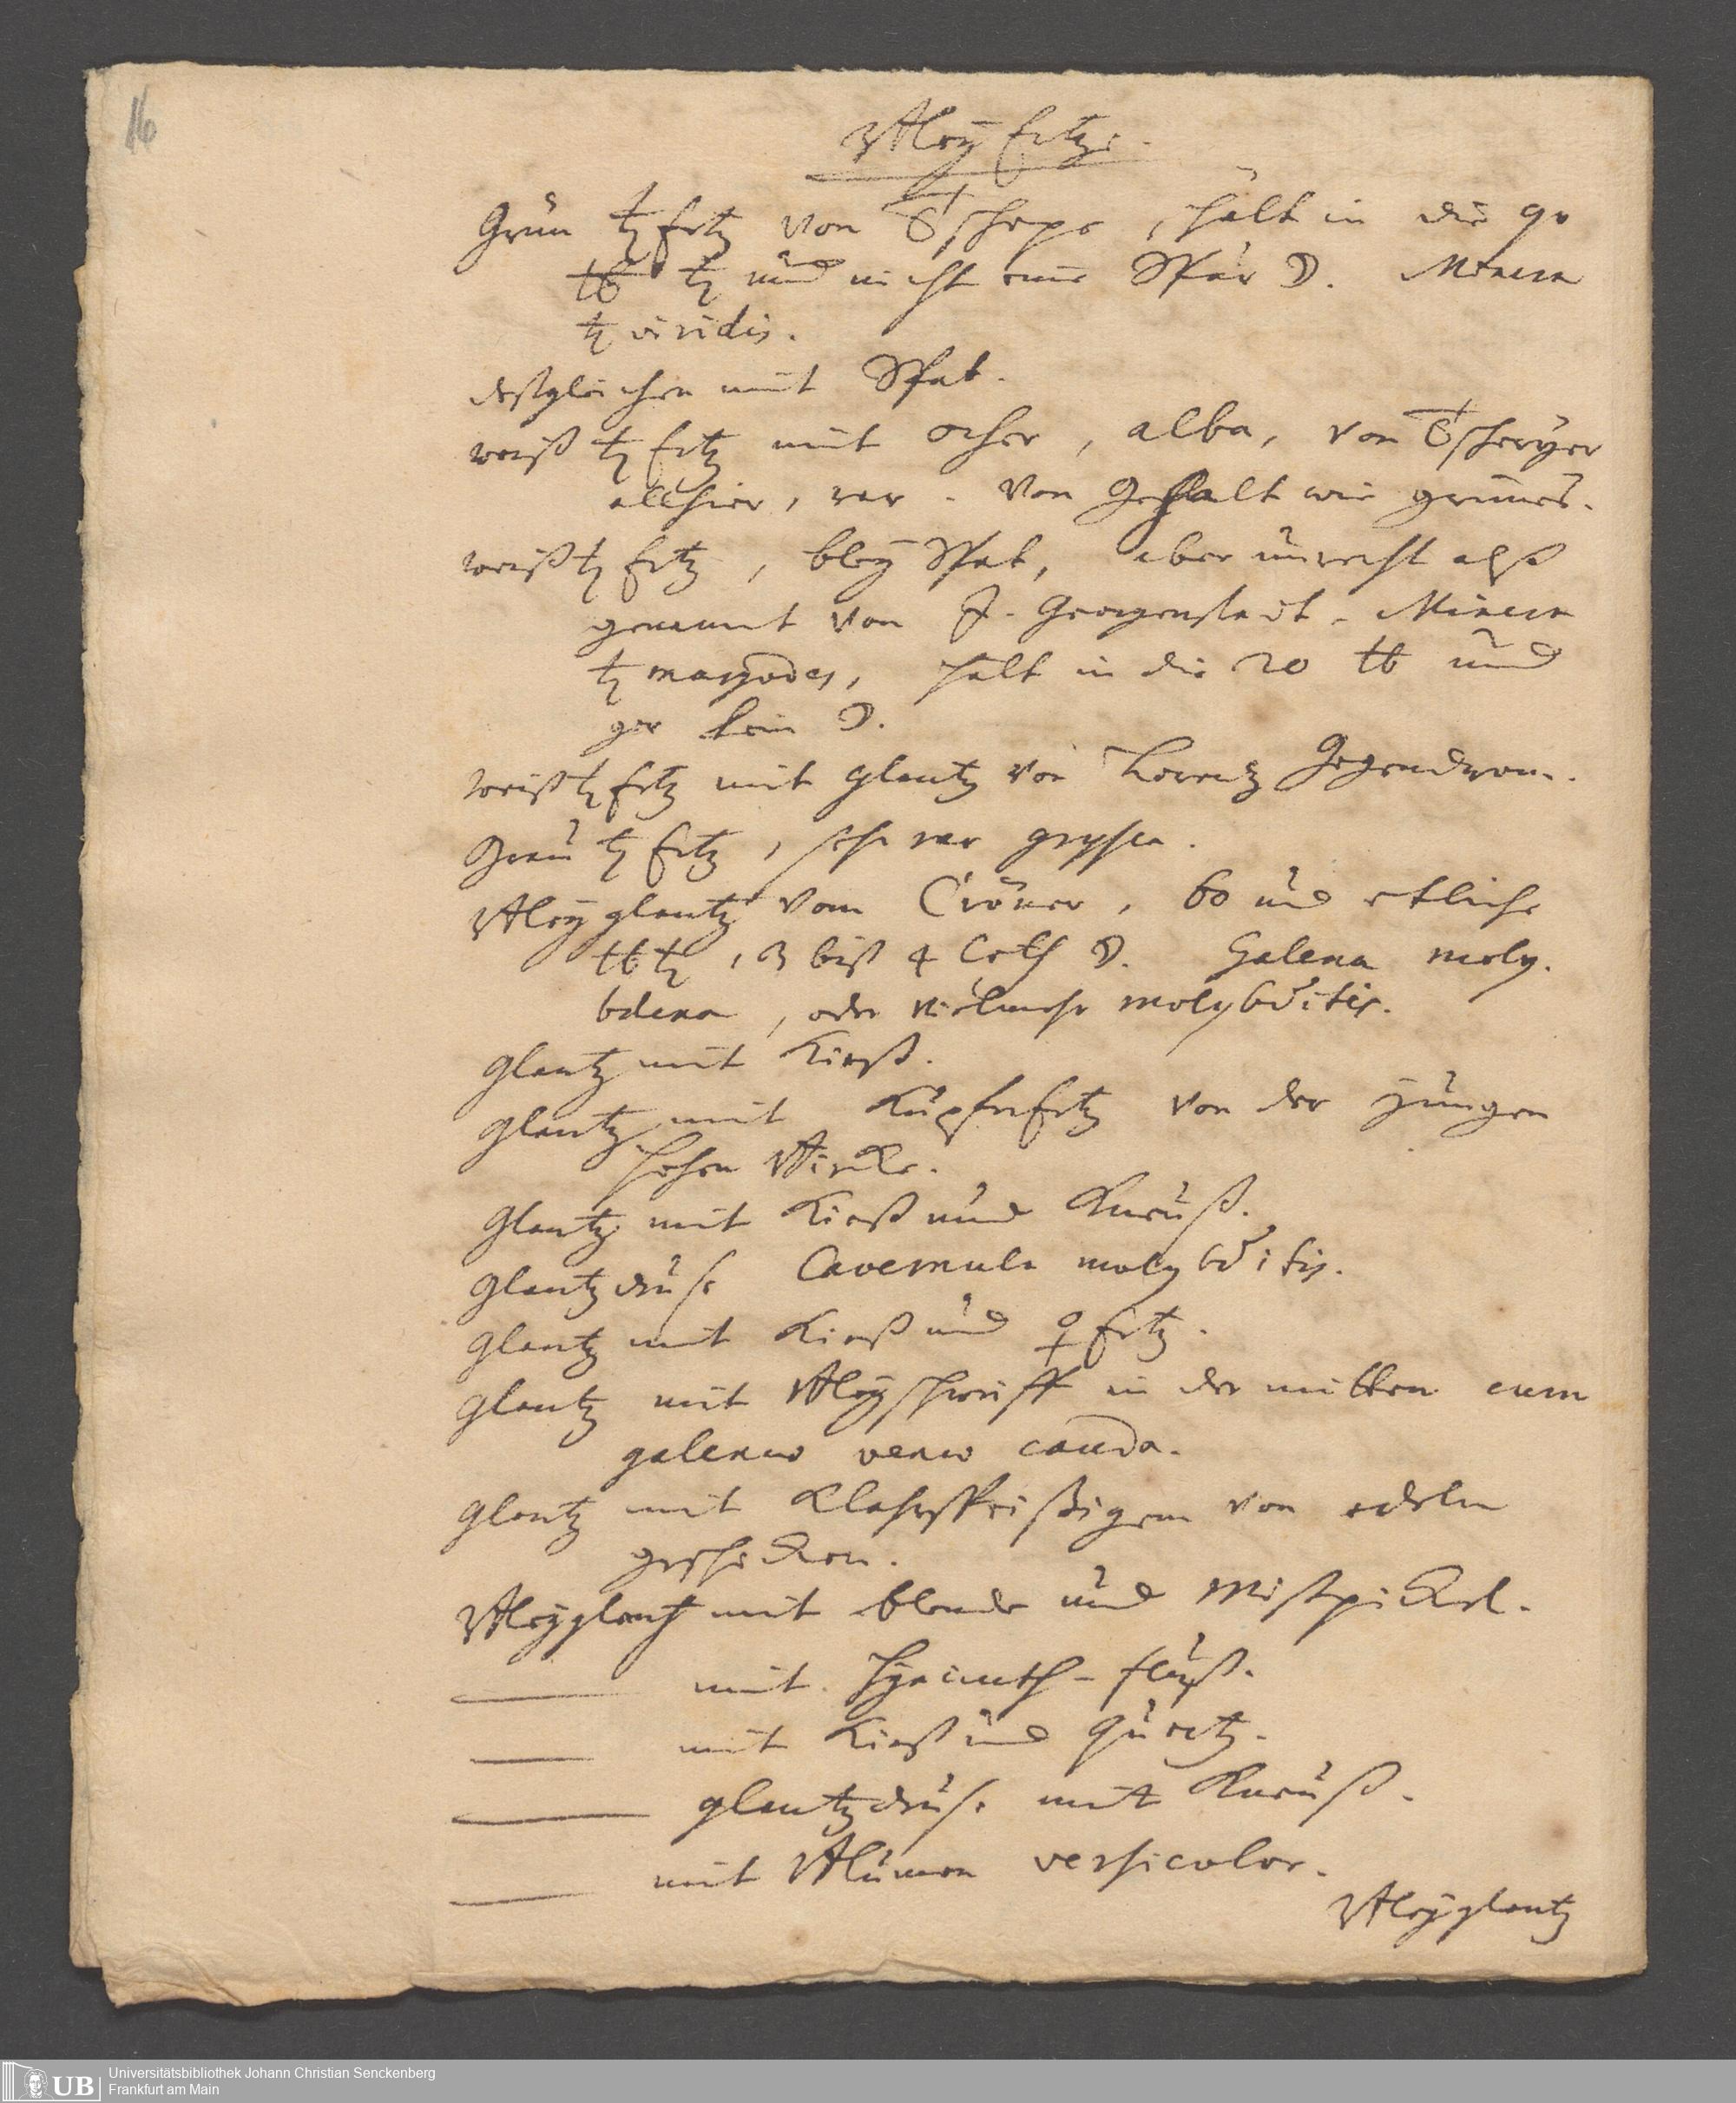 16
Bleÿ Ertze.
Grün ♄ Ertz von Tschope, hält in die 90
℔ ♄ und nicht eine Spur ☽. Minera
♄ viridis.
deßgleichen mit Spat.
weiß ♄ Ertz mit ocher, alba, von
allhier, rar. Von Gehalt wie grünes.
weiß ♄ Ertz, bleÿ Spat, aber unrecht also
genannt von J. Georgenstadt. Minera
♄ hält in die 70 ℔ und
gar kein ☽.
weiß ♄ Ertz mit glantz von Lorentz Gegendrom.
Grau ♄ Ertz, sehr rar grysea.
Bleÿglantz vom Cröner, 60 und etliche
℔ ♄, 3 biß 4 Loth ☽. Galena moly.
bdena, oder vielmehr molybditis.
glantz mit Kieß.
glantz mit Kupferertz von der jungen
hohen Bircke.
Glantz mit Kieß und Knauß.
Glantzdruse Cavernula molybditis.
glantz mit Kieß und ♀ Ertz.
glantz mit Bleÿschweiff in der mitten cum
galenae venae cauda.
glantz mit von edeln
geschicken.
Bleÿglantz mit blende und Mißpickel.
——— mit Hyacinth-fluß.
——— mit Kieß und Quertz.
——— glantzdruse mit Knauß.
——— mit Blumen versicolor.
Bleÿglantz
UB
Universitätsbibliothek Johann Christian Senckenberg
Frankfurt am Main